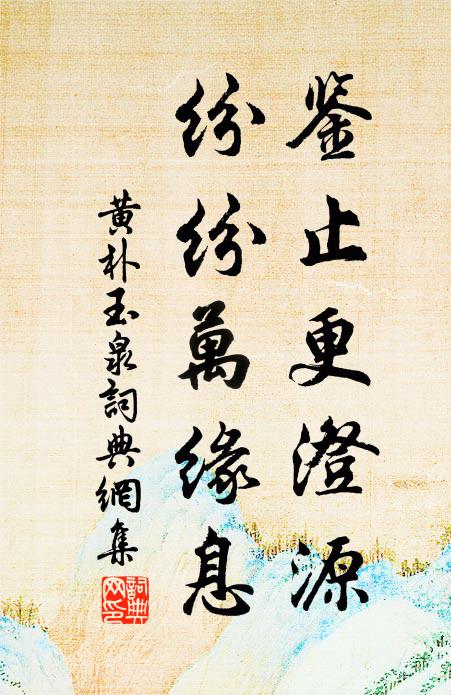 鉴止更澄源
紛紛萬緣息
黄朴玉泉詞典網集
詞典